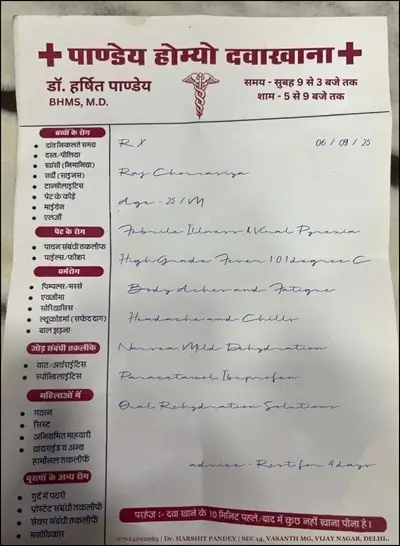 पाण्डेय होम्यो दवाखाना
डॉ. हर्षित पाण्डेय
BHMS, M.D.
समय - सुबह 9 से 3 बजे तक
शाम - 5 से 9 बजे तक
बच्चों के रोग
दांत निकलते समय
दस्त/पीलिया
खांसी (निमोनिया)
सर्दी (साइनस)
टान्सीलाइटिस
पेट के कीड़े
माईग्रेन
एलर्जी
पेट के रोग
पाचन संबंधी तकलीफ
पाईल्स/फीशर
चर्मरोग
पिम्पल्स/मस्से
एक्जीमा
सोरियासिस
ल्यूकोडर्मा (सफेद दाग)
बाल झड़ना
जोड़ संबंधी तकलीफें
वात/अर्थराईटिस
स्पोन्डिलाईटिस
महिलाओं में
गठान
सिस्ट
अनियमित माहवारी
थायराईड व अन्य
हार्मोनल तकलीफें
पुरुषो के अन्य रोग
गुर्दे में पथरी
प्रोस्टेट संबंधी तकलीफें
सेक्स संबंधी तकलीफें
मनोविकार
RX 06/09/25
Raj
Age - 25/M
Febrile Illness & Viral Pyrexia
High Grade Fever 101 degree C
Body Aches and Fatigue
Headache and Chills
Nausea Mild Dehydration
Paracetamol Ibuprofen
Oral Rehydration Solutions
advice - Rest for 4 days
परहेज :- दवा खाने के 10 मिनिट पहले/बाद में कुछ नहीं खाना पीना है।
| Dr. HARSHIT PANDEY | SEC 14, VASANTH MG, VIJAY NAGAR, DELHI..